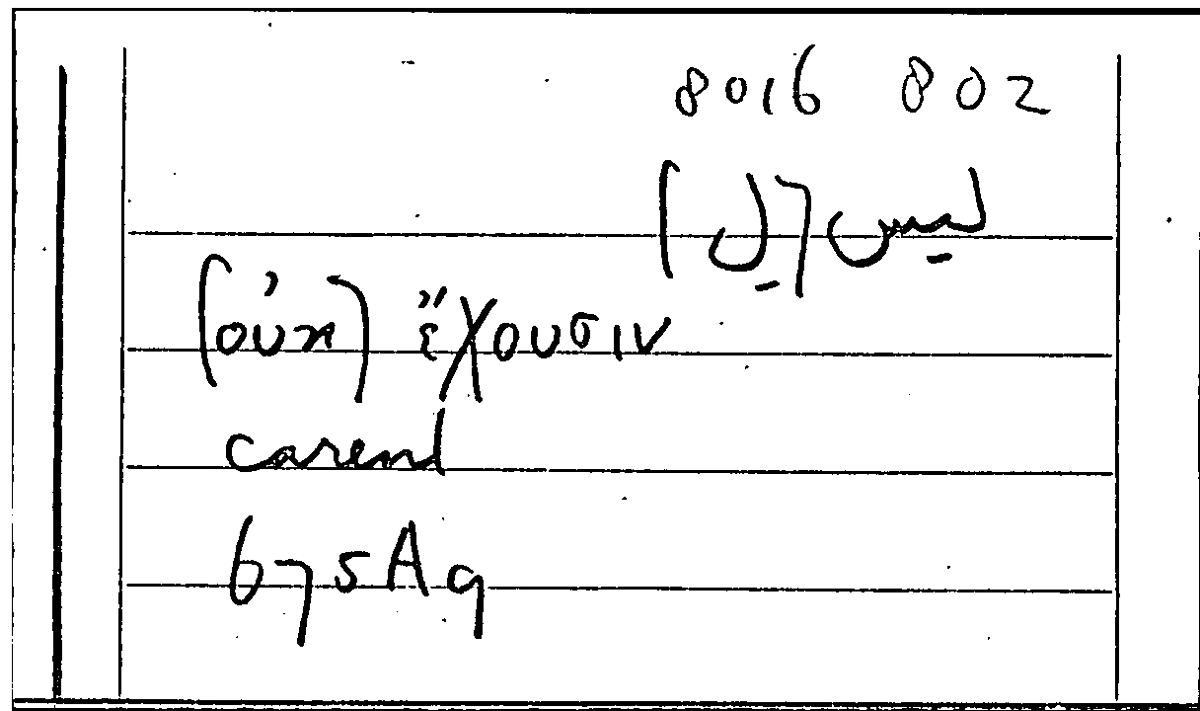 8016 802
ليس [ل]
(οὐκ) ἔχουσιν
carent
675A9